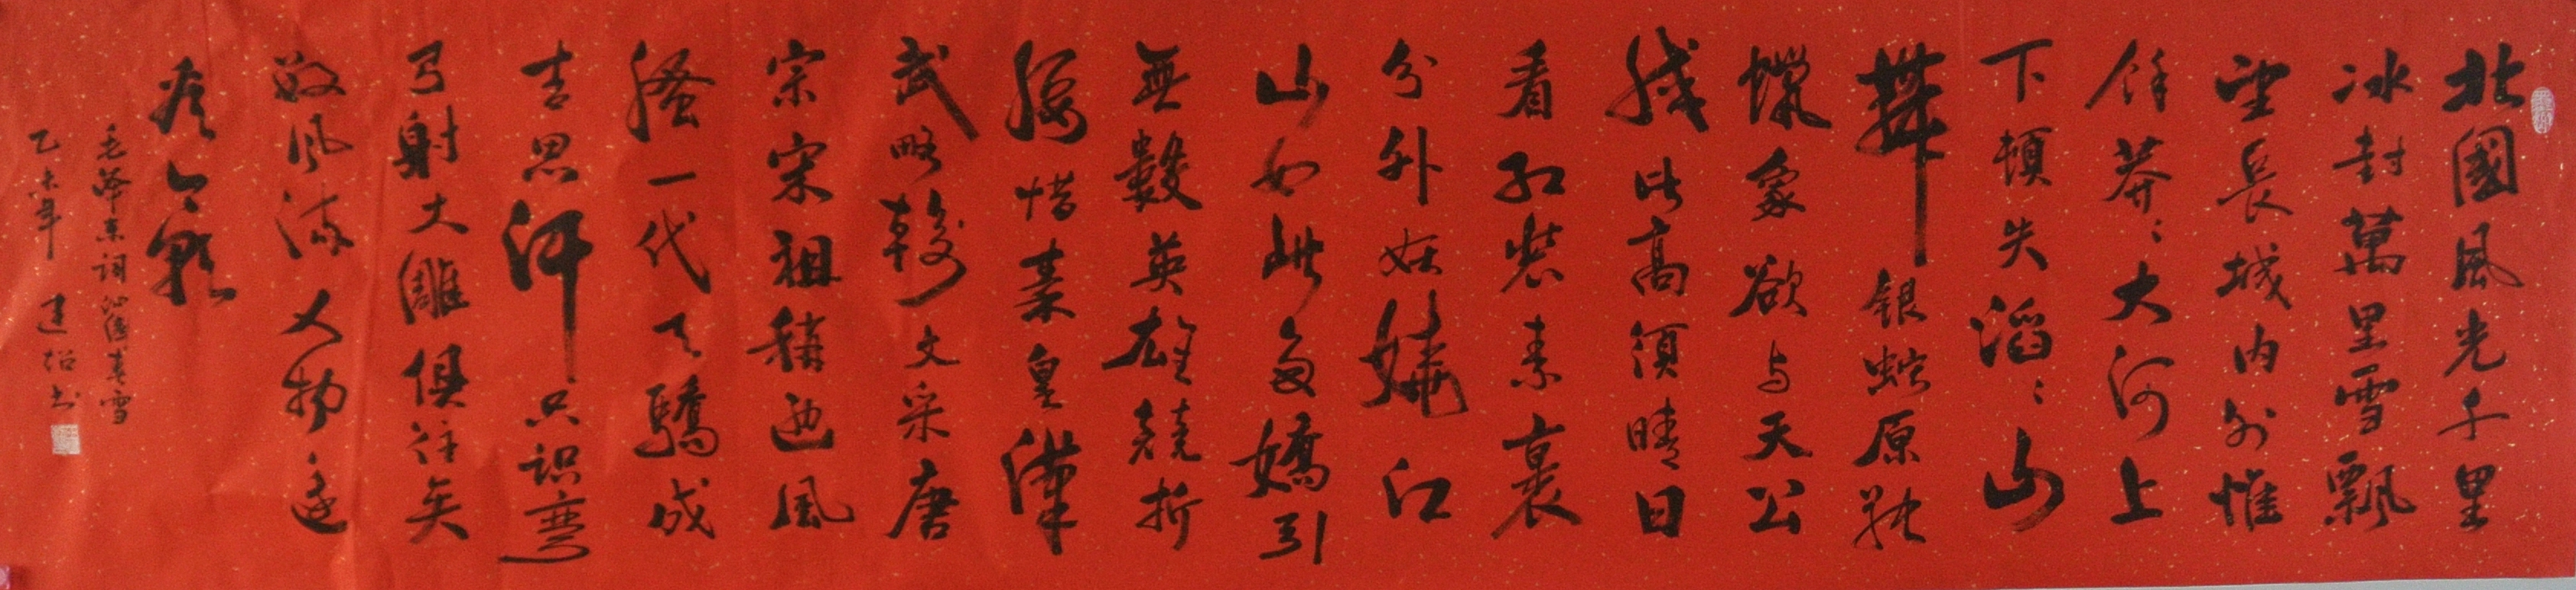 北國風光千里
冰封萬里雪飄
望長城內外惟
餘莽〻大河上
下頓失滔〻山
舞銀蛇原馳
蠟象欲与天公
試比高須晴日
看紅裝素裹
分外妖嬈江
山如此多嬌引
無數英雄競折
腰惜秦皇漢
武略輸文采唐
宗宋祖稍遜風
騷一代天驕成
吉思汗只识彎
弓射大雕俱往矣
數風流人物還
看今朝
毛澤東詞沁園春雪
乙未年 建书